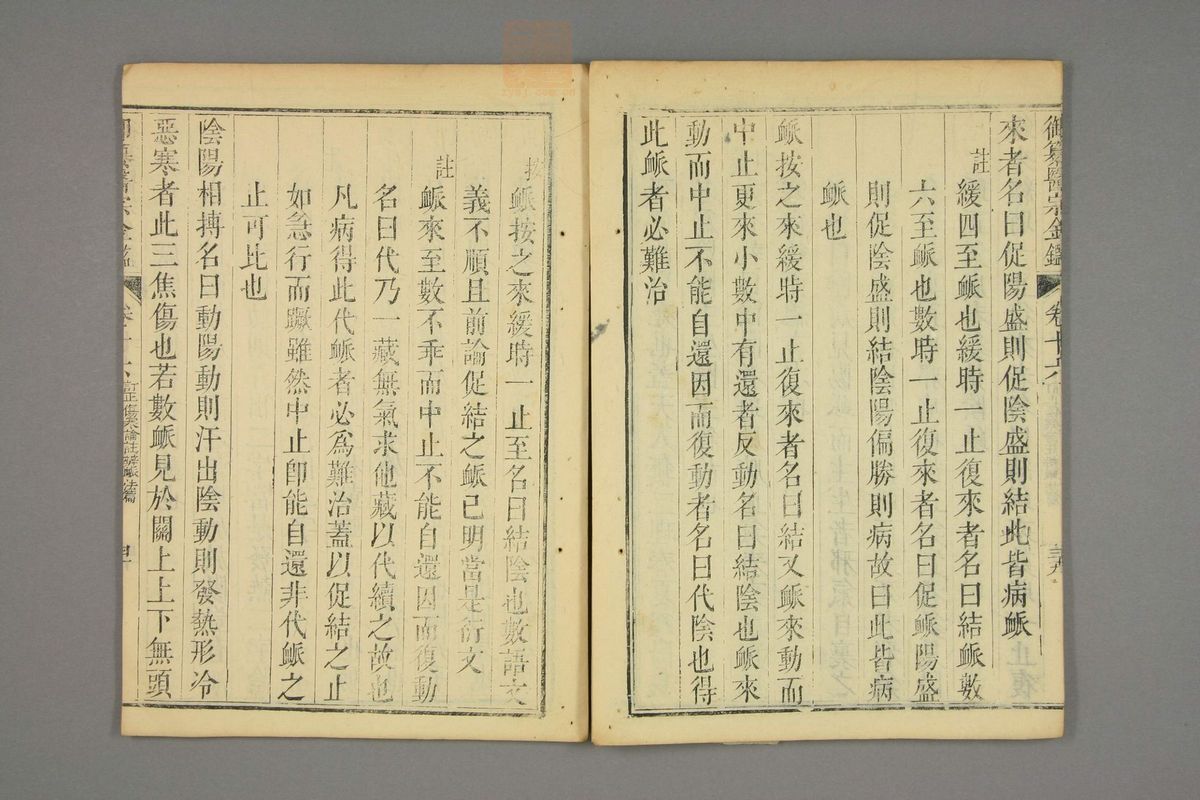 御纂醫宗金鑑 卷十六 三九
來者名曰促陽盛則促陰盛則結此皆病脈
註 緩四至脈也緩時一止復來者名曰結脈數
六至脈也數時一止復來者名曰促脈陽盛
則促陰盛則結陰陽偏勝則病故曰此皆病
脈也
脈按之來緩時一止復來者名曰結又脈來動而
中止更來小數中有還者反動名曰結陰也脈來
動而中止不能自還因而復動者名曰代陰也得
此脈者必難治
按 脈按之來緩時一止至名曰結陰也數語文
義不順且前論促結之脈已明當是衍文
註 脈來至數不乖而中止不能自還因而復動
名曰代乃一藏無氣求他藏以代續之故也
凡病得此代脈者必為難治蓋以促結之止
如急行而蹶雖然中止卽能自還非代脈之
止可比也
陰陽相搏名曰動陽動則汗出陰動則發熱形冷
惡寒者此三焦傷也若數脈見於關上上下無頭
卷十六 訂正傷寒論註辨脈法篇 四十